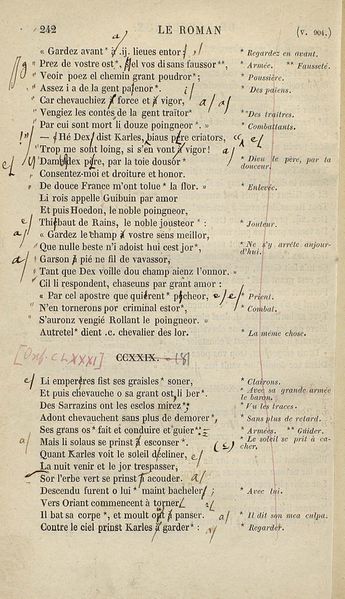 242 LE ROMAN (v. 904.)
« Gardez avant* à .ij. lieues entor; * Regardez en avant.
Prez de vostre ost*, nel vos di sans faussor**, * Armée. ** Fausseté.
Veoir poez el chemin grant poudror*; * Poussière.
Assez i a de la gent paienor*. * Des païens.
Car chevauchiez à force et à vigor,
Vengiez les contes de la gent traïtor* * Des traîtres.
Par cui sont mort li douze poingneor*. » * Combattants.
— « Hé Dex, dist Karles, biaus père criators,
Trop me sont loing, si s'en vont à vigor!
Damedex père, par ta toie dousor* * Dieu le père, par ta douceur.
Consentez-moi et droiture et honor.
De douce France m'ont tolue* la flor. » * Enlevée.
Li rois appelle Guibuin par amor
Et puis Hoedon, le noble poingneor,
Thiébaut de Rains, le noble jousteor*: * Jouteur.
« Gardez le champ à vostre sens meillor,
Que nulle beste n'i adoist hui cest jor*, * Ne s'y arrête aujourd'hui.
Garson à pié ne fil de vavassor,
Tant que Dex voille dou champ aienz l'onnor. »
Cil li respondent, chascuns par grant amor:
« Par cel apostre que quièrent* pécheor, * Prient.
N'en tornerons por criminal estor*, * Combat.
S'auronz vengié Rollant le poingneor. »
Autretel* dient .c. chevalier des lor. * La même chose.
CCXXIX.
Li emperères fist ses graisles* soner, * Clairons.
Et puis chevauche o sa grant ost li ber*. * Avec sa grande armée le baron.
Des Sarrazins ont les esclos mirez*; * Vu les traces.
Adont chevauchent sans plus de demorer*, * Sans plus de retard.
Ses grans os* fait et conduire et guier**. * Armées. ** Guider.
Mais li solaus se prinst à esconser*. * Le soleil se prit à cacher.
Quant Karles voit le soleil décliner,
La nuit venir et le jor trespasser,
Sor l'erbe vert se prinst à acouder.
Descendu furent o lui* maint bacheler; * Avec lui.
Vers Oriant commencent à torner.
Il bat sa corpe*, et moult ot à panser. * Il dit son mea culpa.
Contre le ciel prinst Karles à garder*: * Regarder.